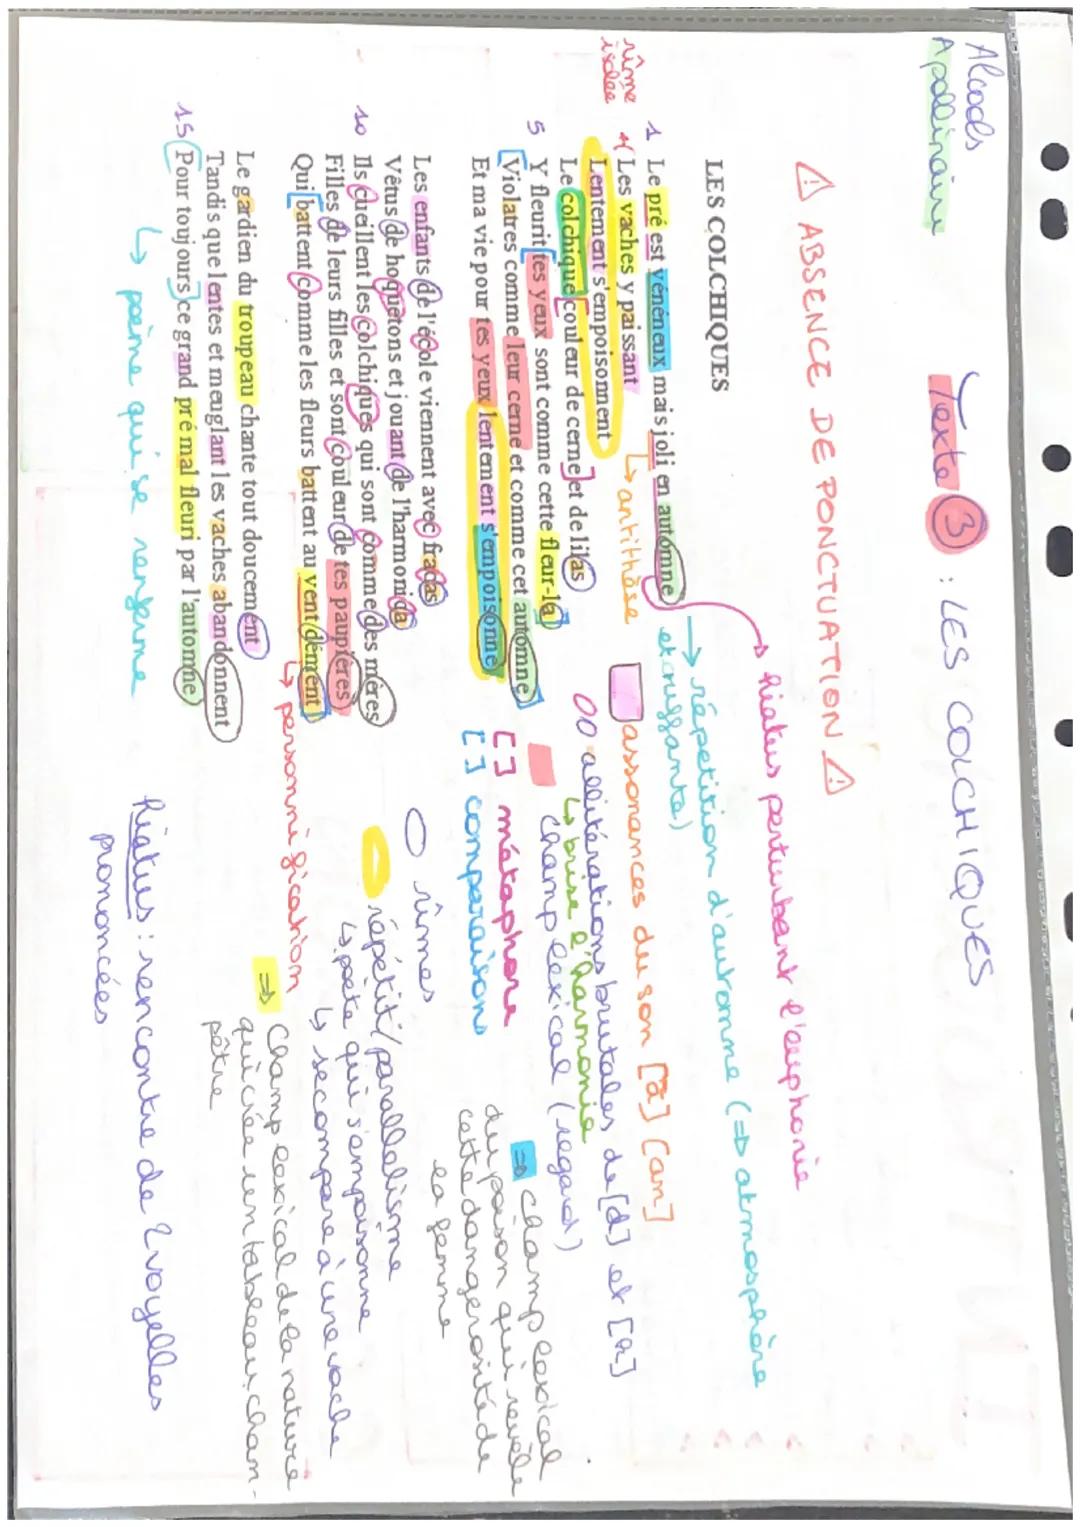 Alcools
Apollinaire
Texte 3 : LES COLCHIQUES
⚠ ABSENCE DE PONCTUATION ⚠
→ hiatus perturbant l'euphonie
LES COLCHIQUES
→ répétition d'automne (⇒ atmosphère
et crissante)
rîme
isolée
1 Le pré est vénéneux mais joli en automne
Les vaches y paissant
↳ antithèse
Lentement s'empoisonnent
Le colchique couleur de cerne et de lilas
5 Y fleurit tes yeux sont comme cette fleur-là
Violâtres comme leur cerne et comme cet automne
Et ma vie pour tes yeux lentement s'empoisonne
assonances du son [ã] (an)
allitérations brutales de [d] et [k]
↳ brise l'harmonie
champ lexical (regard)
[ ] métaphore
[ ] comparaisons
⇒ champ lexical
du poison qui révèle
cette dangerosité de
la femme
Les enfants de l'école viennent avec fracas
Vêtus de hoquetons et jouant de l'harmonica
10 Ils cueillent les colchiques qui sont comme des mères
Filles de leurs filles et sont couleur de tes paupières
Qui battent comme les fleurs battent au vent dément
rîmes
répétit°/parallélisme
↳ poète qui s'empoisonne
↳ se compare à une vache
↳ personnification
⇒ Champ lexical de la nature
qui crée un tableau cham-
pêtre
Le gardien du troupeau chante tout doucement
Tandis que lentes et meuglant les vaches abandonnent
15 Pour toujours ce grand pré mal fleuri par l'automne
↳ poème qui se renferme
hiatus : rencontre de 2 voyelles
prononcées